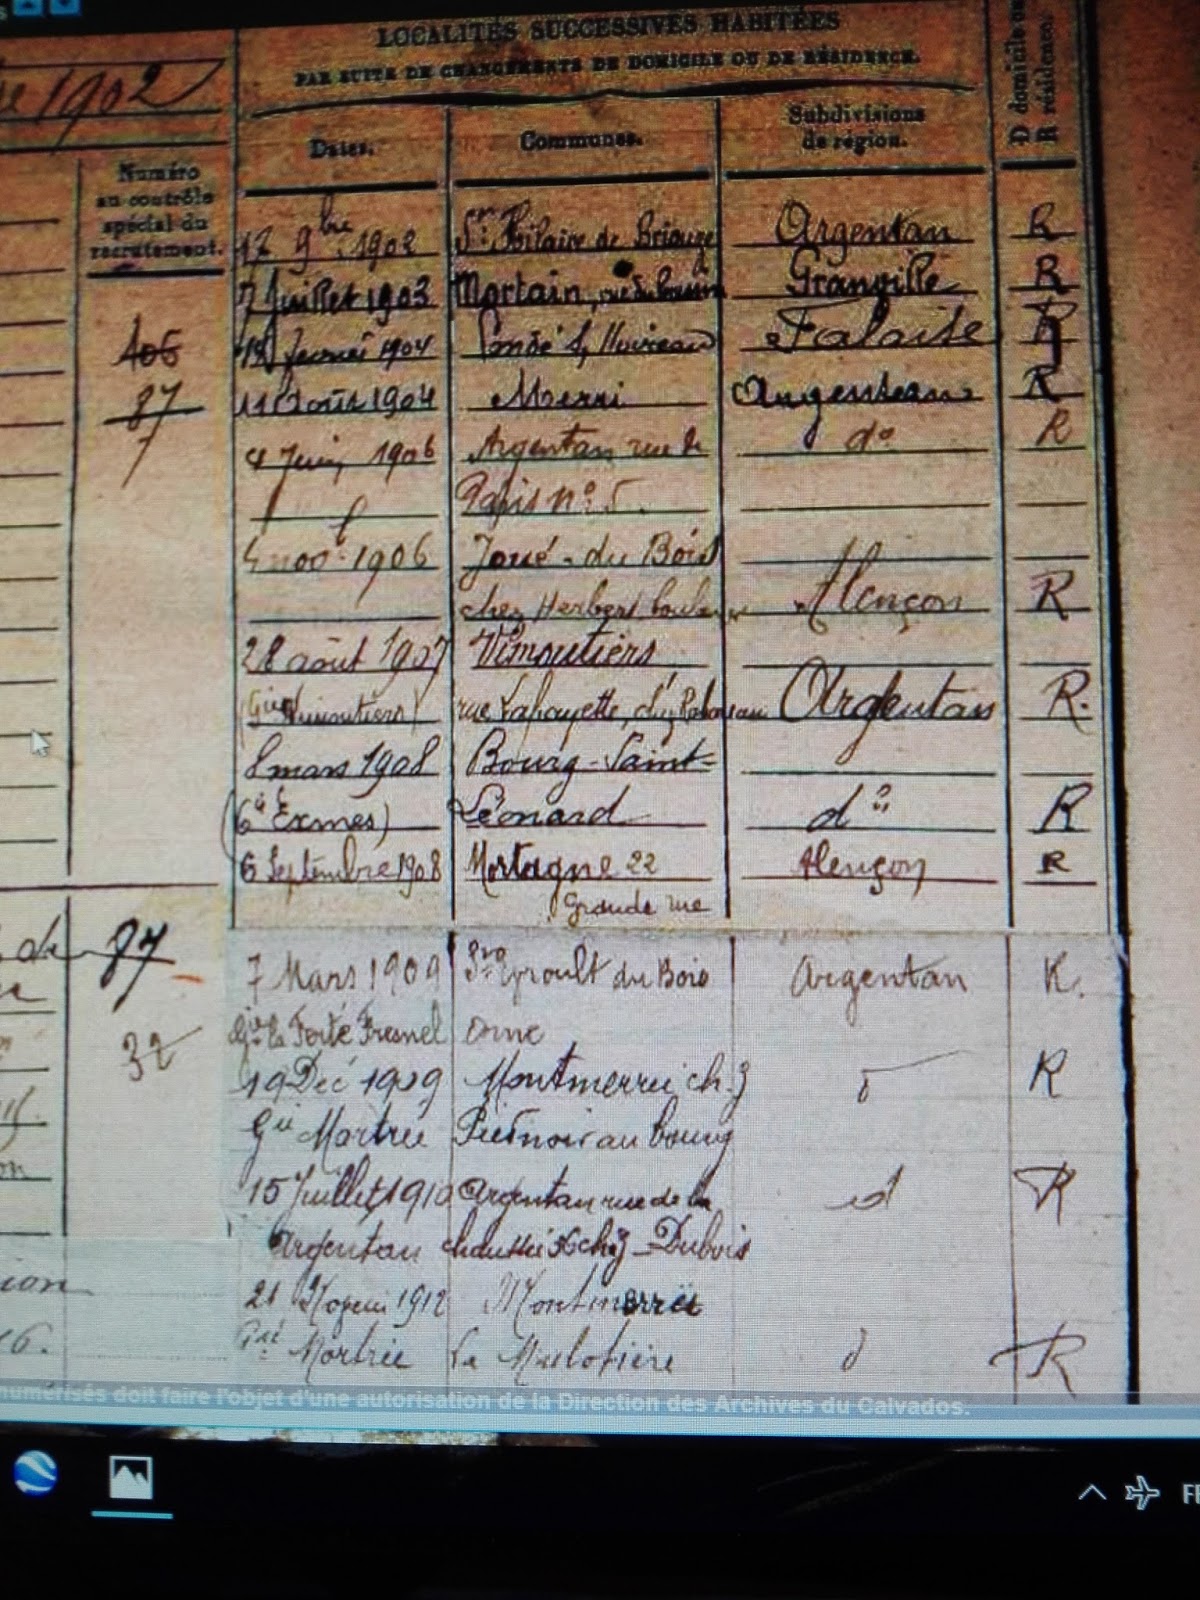 LOCALITÉS SUCCESSIVES HABITÉES
PAR SUITE DE CHANGEMENTS DE DOMICILE OU DE RÉSIDENCE.
1902
Numéro au contrôle spécial du recrutement.
Dates. Communes. Subdivisions de région. D domicile ou R résidence.
17 9bre 1902 St Hilaire de Briouze Argentan R
7 Juillet 1903 Mortain, rue du Granville R
106 février 1904 Condé s/ Noireau Falaise R
87 11 Août 1904 Merri Argentan R
4 Juin 1906 Argentan rue de do R
Paris no 5.
4 nov 1906 Joué-du Bois
chez Herbert Alençon R
28 août 1907 Vimoutiers
Vimoutiers) rue Lafayette, Argentan R.
8 mars 1908 Bourg-Saint-
Exmes) Léonard do R
6 Septembre 1908 Mortagne 22 Alençon R
Grande rue
87 7 Mars 1909 Evroult du Bois Argentan R.
la Ferté Fresnel Orne
32 19 Déc 1909 Montmerrei ch. R
Mortrée au bourg
15 Juillet 1910 Argentan rue de la d R
Argentan chaussée Dubois
21 1912 Montmerrei
Mortrée La Mulotière d R
numérisés doit faire l'objet d'une autorisation de la Direction des Archives du Calvados.